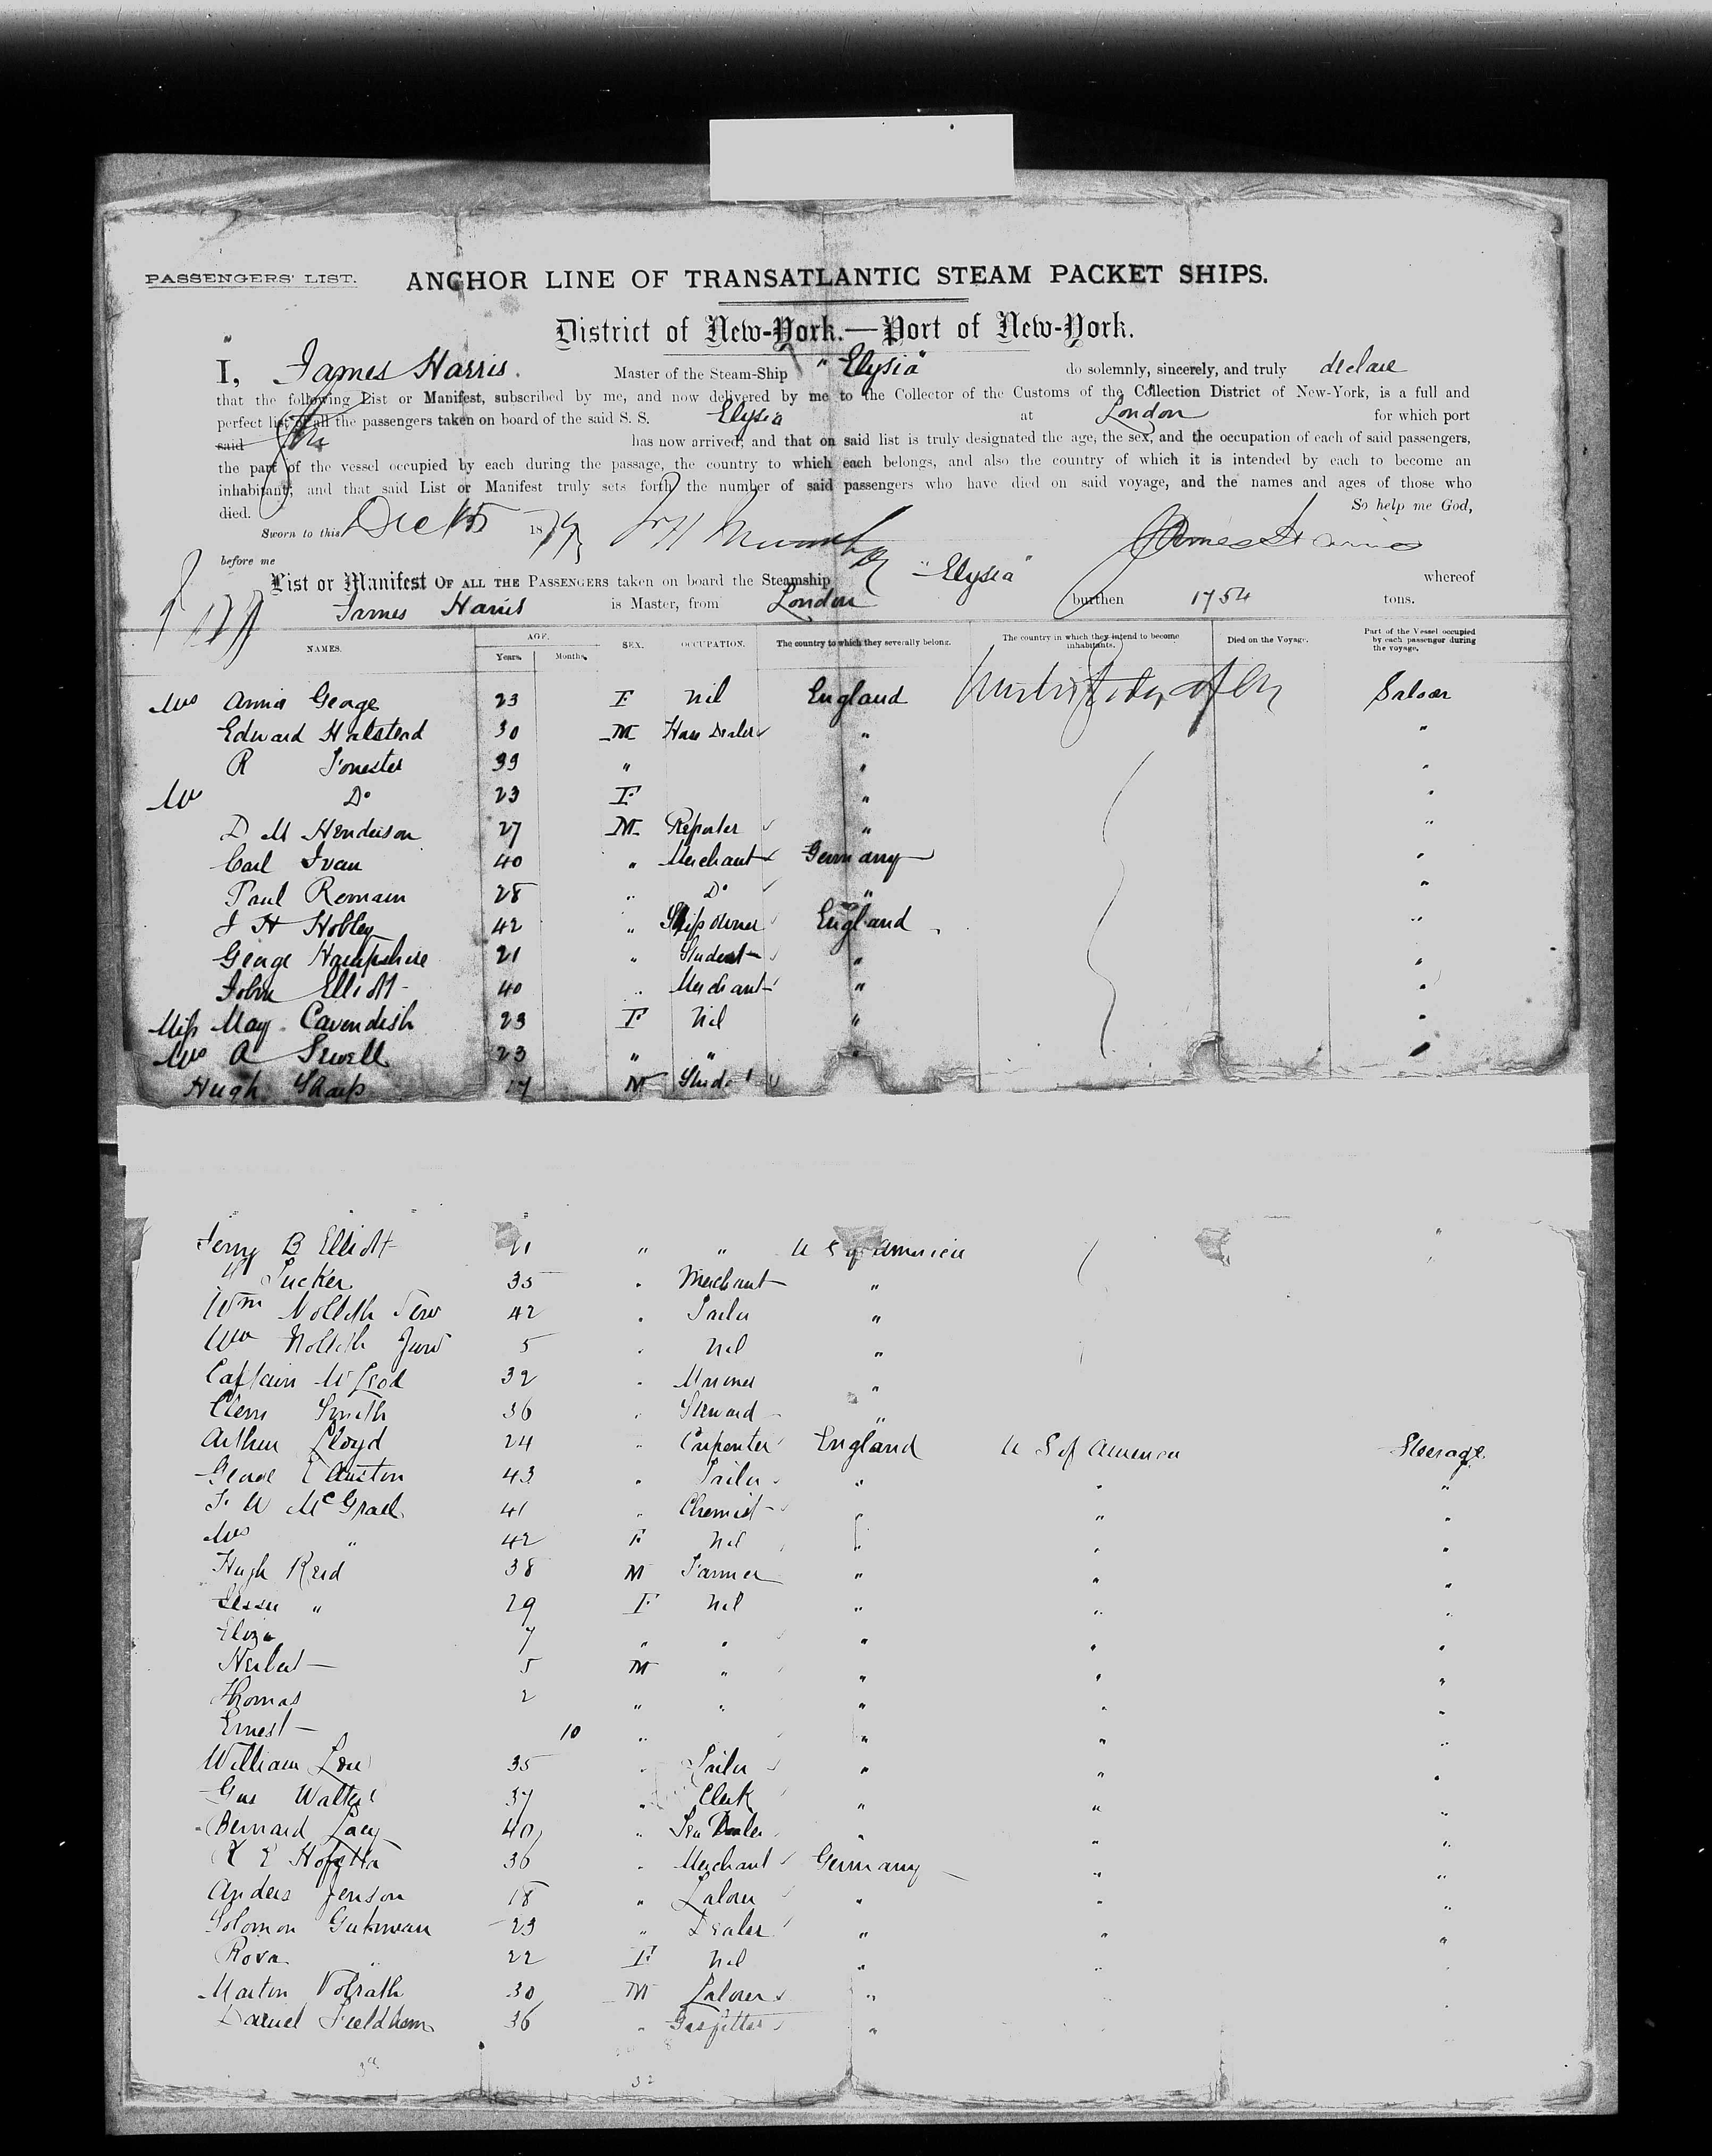 PASSENGERS' LIST. ANCHOR LINE OF TRANSATLANTIC STEAM PACKET SHIPS.
District of New-York.—Port of New-York.
I, James Harris. Master of the Steam-Ship "Elysia" do solemnly, sincerely, and truly declare
that the following List or Manifest, subscribed by me, and now delivered by me to the Collector of the Customs of the Collection District of New-York, is a full and
perfect list of all the passengers taken on board of the said S. S. Elysia at London for which port
said has now arrived; and that on said list is truly designated the age, the sex, and the occupation of each of said passengers,
the part of the vessel occupied by each during the passage, the country to which each belongs, and also the country of which it is intended by each to become an
inhabitant; and that said List or Manifest truly sets forth the number of said passengers who have died on said voyage, and the names and ages of those who
died. So help me God,
Sworn to this Dec 15 1879 James Harris
before me
List or Manifest OF ALL THE PASSENGERS taken on board the Steamship "Elysia" whereof
James Harris is Master, from London burthen 1754 tons.
NAMES. AGE. Years. Months. SEX. OCCUPATION. The country to which they severally belong. The country in which they intend to become inhabitants. Died on the Voyage. Part of the Vessel occupied by each passenger during the voyage.
Mrs Annie George 23 F Nil England Saloon
Edward Halstead 30 M Horse Dealer " "
R Forrester 39 " " "
Mrs Do 23 F " "
D M Henderson 27 M Reporter " "
Carl Ivan 40 " Merchant Germany "
Paul Romain 28 " Do " "
J H Hobley 42 " Ship Owner England "
George Hampshire 21 " Student " "
John Elliott 40 " Merchant " "
Miss May Cavendish 23 F Nil " "
Mrs A Sewell 23 " " " "
Hugh Sharp 17 M
B Elliott 21 " " U S of America "
Tucker 35 " Merchant "
Wm 42 " Tailor "
Wm 5 " Nil "
Captain McLeod 32 " Mariner "
Clem Smith 36 " Steward "
Arthur Lloyd 24 " Carpenter England U S of America Steerage
George E Austin 43 " Tailor " " "
41 " Chemist " " "
Mrs " 42 F Nil " " "
Hugh Reid 38 M Farmer " " "
Jessie " 29 F Nil " " "
Eliza 7 " " " " "
Herbert 5 M " " " "
Thomas 2 " " " " "
Ernest 10 " " " "
William Low 35 " Tailor " " "
Gus Walter 37 " Clerk " " "
Bernard Lacy 40 " Tea Dealer " " "
36 " Merchant Germany " "
Anders Jenson 18 " Laborer " " "
Solomon Gutman 23 " Dealer " " "
Rosa " 22 F Nil " " "
Martin Volrath 30 M Laborer " " "
Daniel Fieldham 36 " Gasfitter "
32